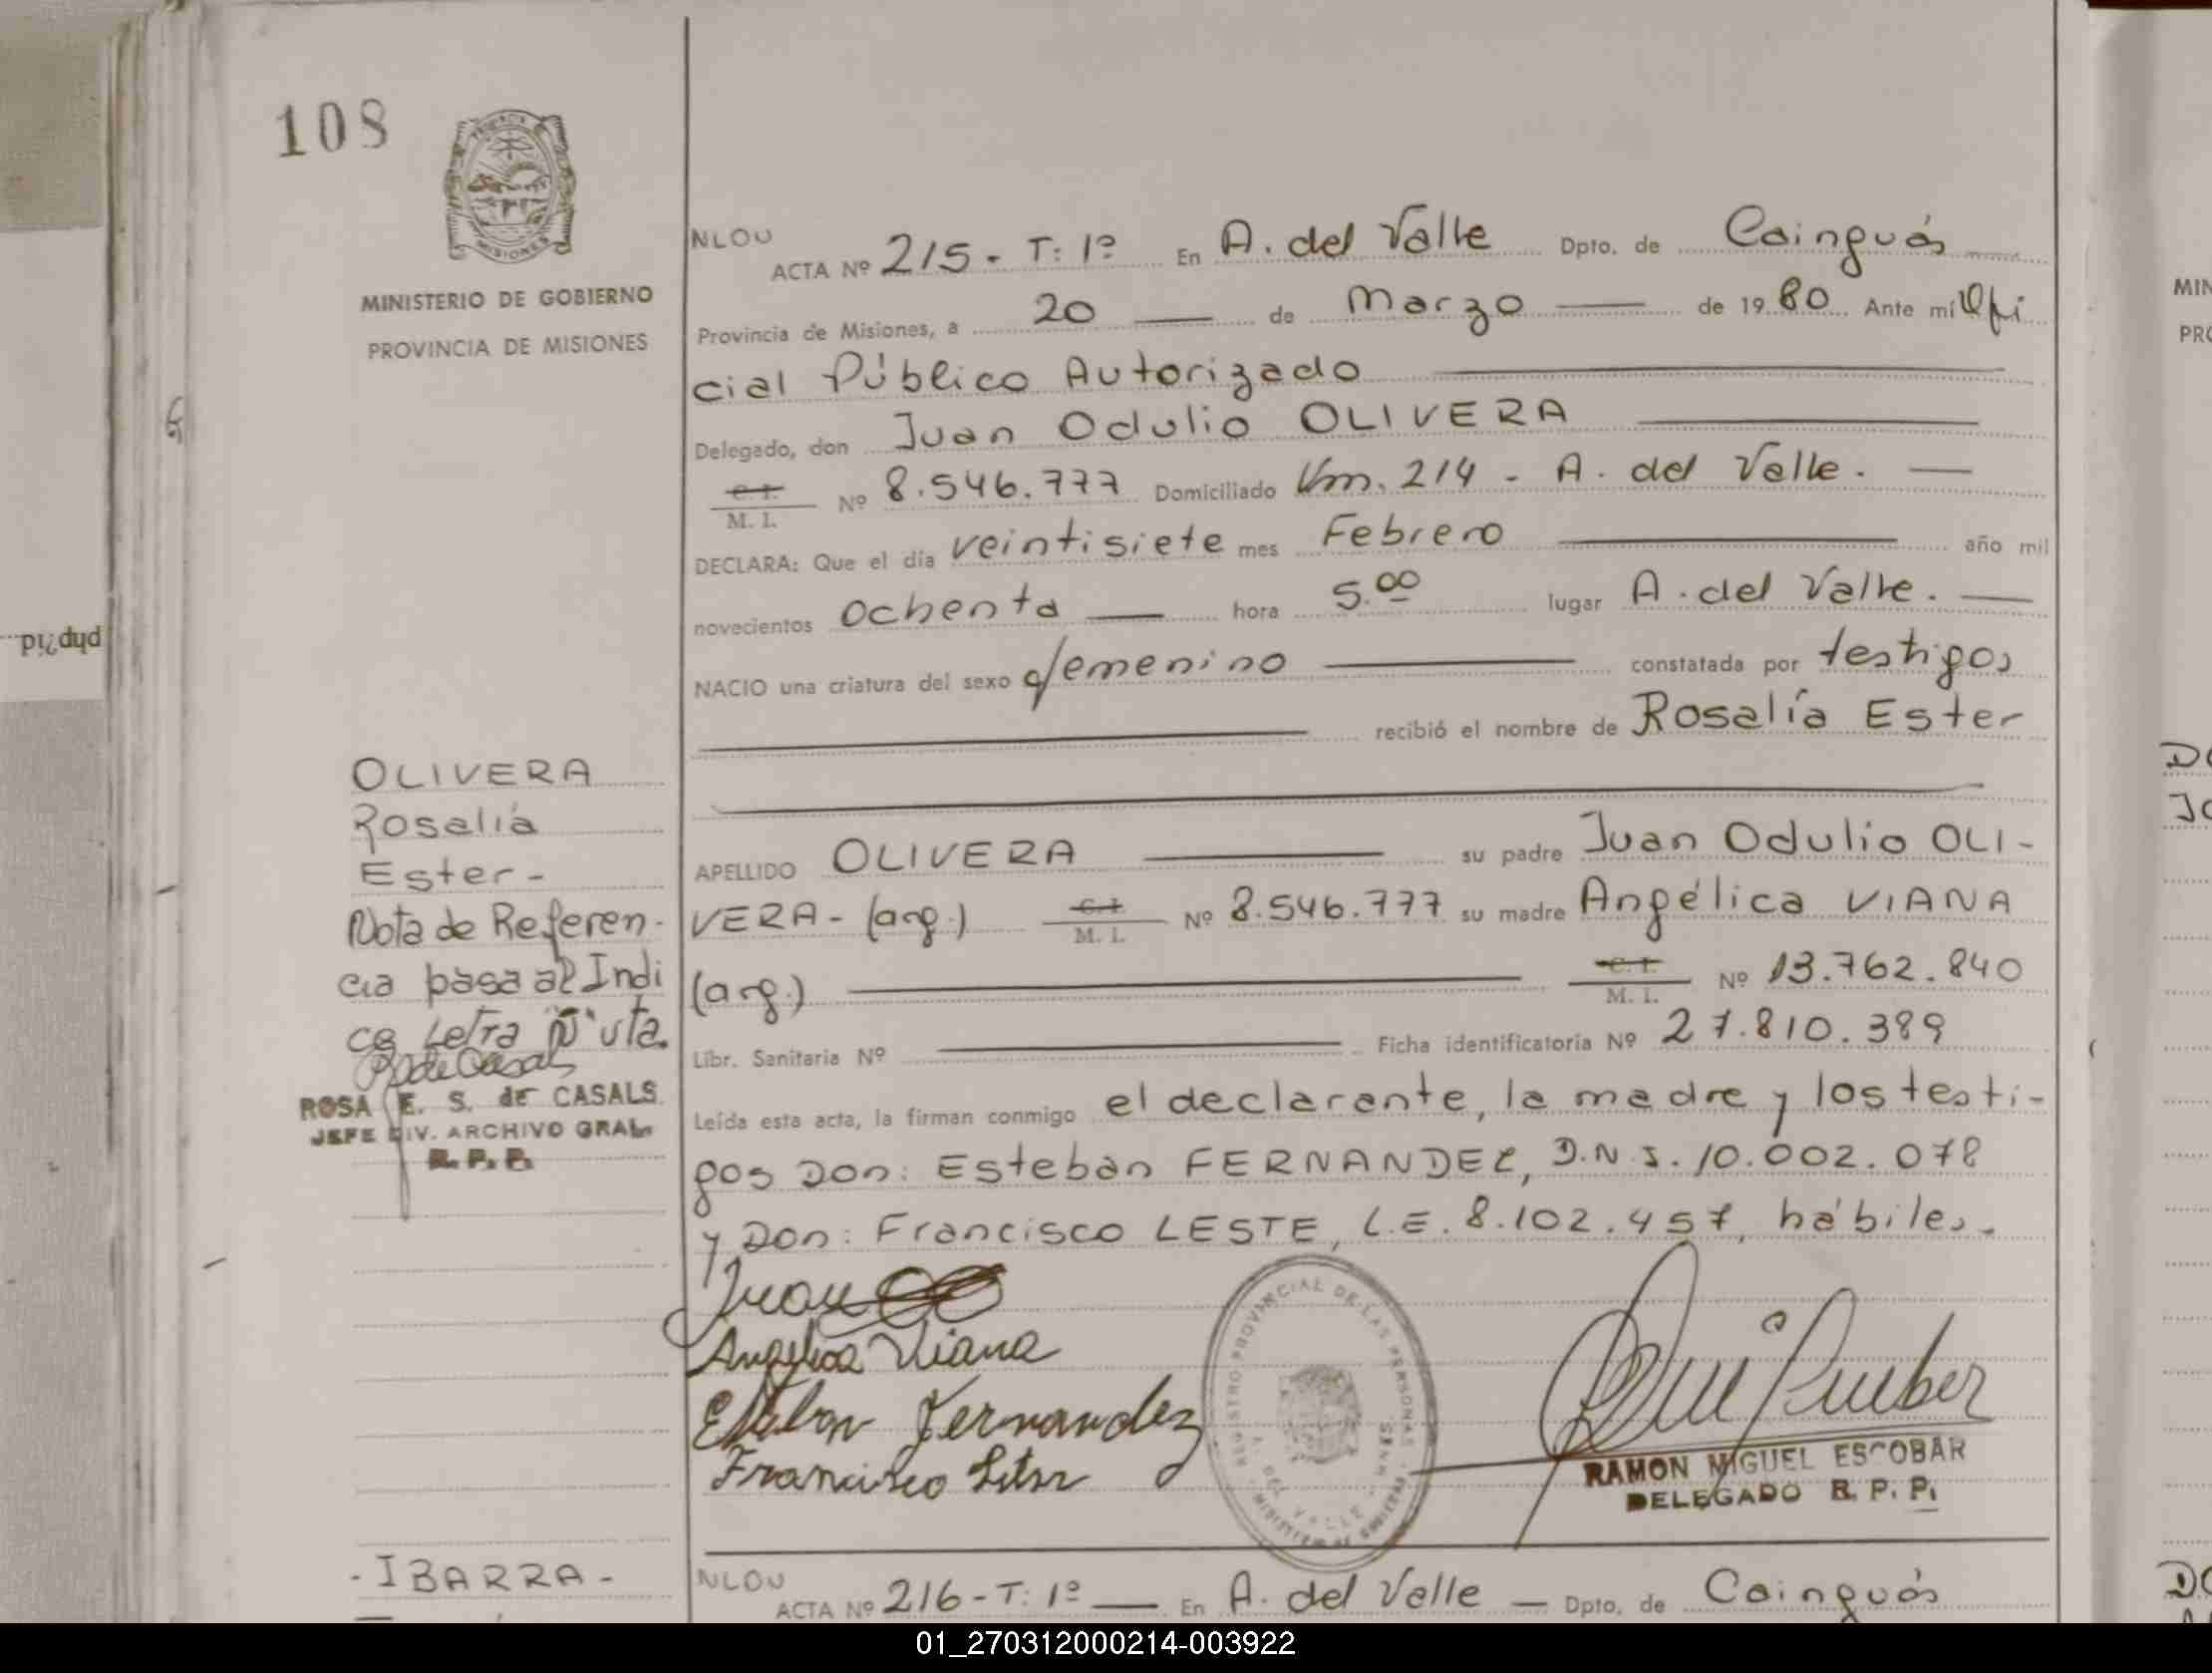 108
MINISTERIO DE GOBIERNO
PROVINCIA DE MISIONES
NLOU
ACTA Nº 215 - T: 1º En A. del Valle Dpto. de Cainguás
Provincia de Misiones, a 20 de Marzo de 1980 Ante mí Ofi
cial Público Autorizado
Delegado, don Juan Odulio OLIVERA
C. I.
M. I. Nº 8.546.777 Domiciliado Km. 214 - A. del Valle.
DECLARA: Que el día veintisiete mes Febrero año mil
novecientos ochenta hora 5.00 lugar A. del Valle.
NACIO una criatura del sexo femenino constatada por testigos
recibió el nombre de Rosalía Ester
APELLIDO OLIVERA su padre Juan Odulio OLI-
VERA - (arg.) C. I. M. I. Nº 8.546.777 su madre Angélica VIANA
(arg.) C. I. M. I. Nº 13.762.840
Libr. Sanitaria Nº Ficha identificatoria Nº 27.810.389
Leída esta acta, la firman conmigo el declarante, la madre y los testi-
gos Don: Esteban FERNANDEZ, D.N.I. 10.002.078
y Don: Francisco LESTE, L.E. 8.102.457, hábiles.
OLIVERA
Rosalía
Ester -
Nota de Referen-
cia pasa al Indi
ce Letra Ñ
ROSA E. S. de CASALS
JEFE DIV. ARCHIVO GRAL.
R. P. P.
Juan
Angélica Viana
Esteban Fernandez
Francisco
REGISTRO PROVINCIAL DE LAS PERSONAS
DEL VALLE
MISIONES
RAMON MIGUEL ESCOBAR
DELEGADO R. P. P.
- IBARRA -
NLOU
ACTA Nº 216 - T: 1º En A. del Valle Dpto. de Cainguás
php?id...
MIN
PRO
DO
JO
DO
01_270312000214-003922